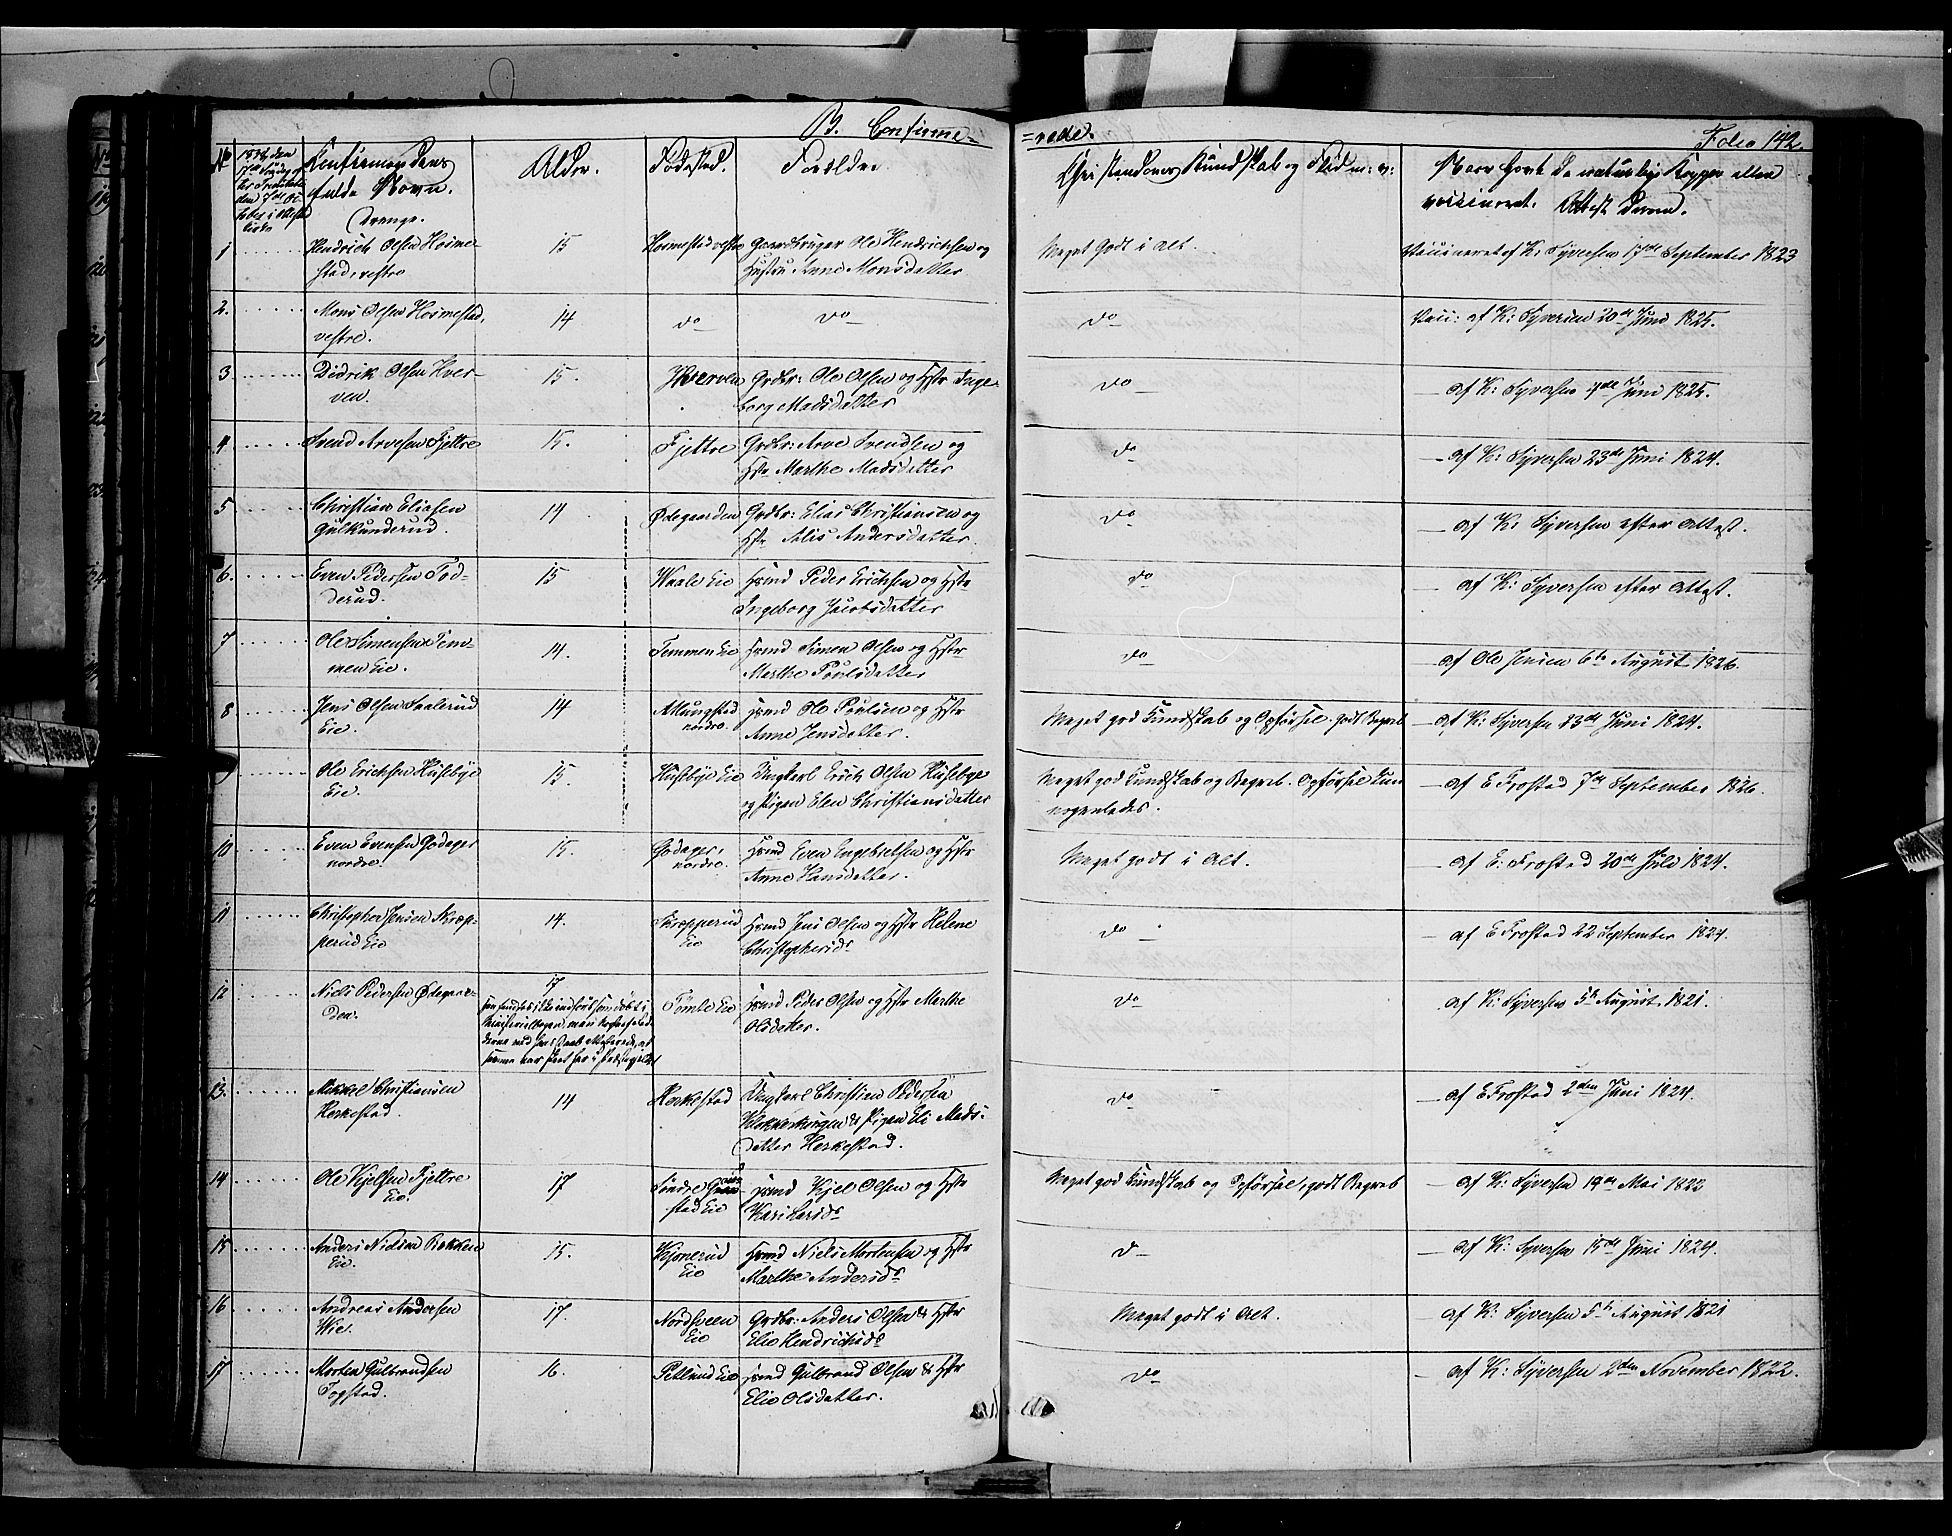 B. Confirme-
=rede.
Folio 142.
No
1838 den
17de Søndag ef-
ter Trinitatis
den 7de Oc-
tober i
Konfirmandens
fulde Navn.
Drenge.
Alder.
Fødested.
Forældre.
Christendoms Kundskab og Flid m: v:
Naar havt de naturlige Kopper eller
vaccineret. Attest derom.
1 Hendrich Olsen Hoime-
stad, vestre
15
Hoimestad vestre
Gaardbruger Ole Hendrichsen og
Hustru Anne Monsdatter
Meget Godt i Alt.
Vaccineret af K: Syversen 17de September 1823
2. Mons Olsen Hoimestad,
vestre.
14
do
do
do
Vacc: af K: Syversen 20de Juni 1825.
3 Didrik Olsen Hver-
ven.
15.
Hverven
Grdbr: Ole Olsen og Hstr Inge-
borg Madsdatter
do
— af K: Syversen 4de Juni 1825.
4 Svend Arvesen Fjettre
15.
Fjettre
Grdbr: Arve Svendsen og
Hstr Marthe Madsdatter
do
— af K: Syversen 23de Juni 1824.
5 Christian Eliasen
Gulkunderud.
14
Ødegaarden
Grdbr: Elias Christiansen og
Hstr Alis Andersdatter
do
— af K: Syversen efter Attest.
6. Even Pedersen Tod-
derud.
15
Waale Eie
Hsmd Peder Erichsen og Hstr
Ingeborg Jacobsdatter
do
— af K: Syversen efter Attest.
7 Ole Simensen Tom-
men Eie.
14.
Tommen Eie
Hsmd Simen Olsen og Hstr
Marthe Poulsdatter
do
— af Ole Jensen 6te August 1826.
8 Jens Olsen Saalerud
Eie.
14
Alkungstad
nordre.
Hsmd Ole Poulsen og Hstr
Anne Jensdatter.
Meget god Kundskab og Opførsel. godt Begreb
— af K: Syversen 23de Juni 1824.
Ole Erichsen Huseby
Eie.
15
Husebye Eie
Ungkarl Erich Olsen Husebye
og Pigen Elen Christiansdatter
Meget god Kundskab og Begreb. Opførsel kun
nogenledes.
— af E Frostad 7de September 1826.
10 Even Evensen Godager
nordre.
15.
Godager,
nordre
Hsmd Even Engebretsen og Hstr
Anne Hansdatter.
Meget godt i Alt.
— af E: Frostad 20de Juli 1824.
11 Christopher Jensen Skrep-
perud Eie
14.
Skrepperud
Eie
Hsmd Jens Olsen og Hstr Helene
Christophersdr
do
— af E Frostad 22 September 1824.
12 Niels Pedersen Ødegaar-
den.
17
Tomle Eie
Hsmd Peder Olsen og Hstr Marthe
Olsdatter.
do
— af K: Syversen 5te August 1821.
13. Mikkel Christiansen
Herkestad.
14
Herkestad
Ungkarl Christian Pedersen
Klokkerhougen & Pigen Eli Mads-
datter Herkestad.
do
— af E Frostad 2den Juni 1824.
14 Ole Kjelsen Fjettre
Eie.
17
Søndre
stad Eie
Hsmd Kjel Olsen og Hstr
Kari Larsdr
Meget god Kundskab og Opførsel, godt Begreb
— af K: Syversen 19de Mai 1822
15 Anders Nielsen Bakken
Eie.
15.
Kjonerud
Eie
Hsmd Niels Mortensen og Hstr
Marthe Andersdr
do
— af K: Syversen 15de Juni 1824.
16 Andreas Andersen
Wie.
17.
Nordsveen
Eie
Grdbr: Anders Olsen & Hstr
Elie Hendrichsdr
Meget godt i Alt.
— af K: Syversen 5te August 1821
17 Morten Gulbrandsen
Togstad.
16.
Petlund Eie
Hsmd Gulbrand Olsen & Hstr
Elie Olsdatter.
do
— af K: Syversen 2den November 1822.